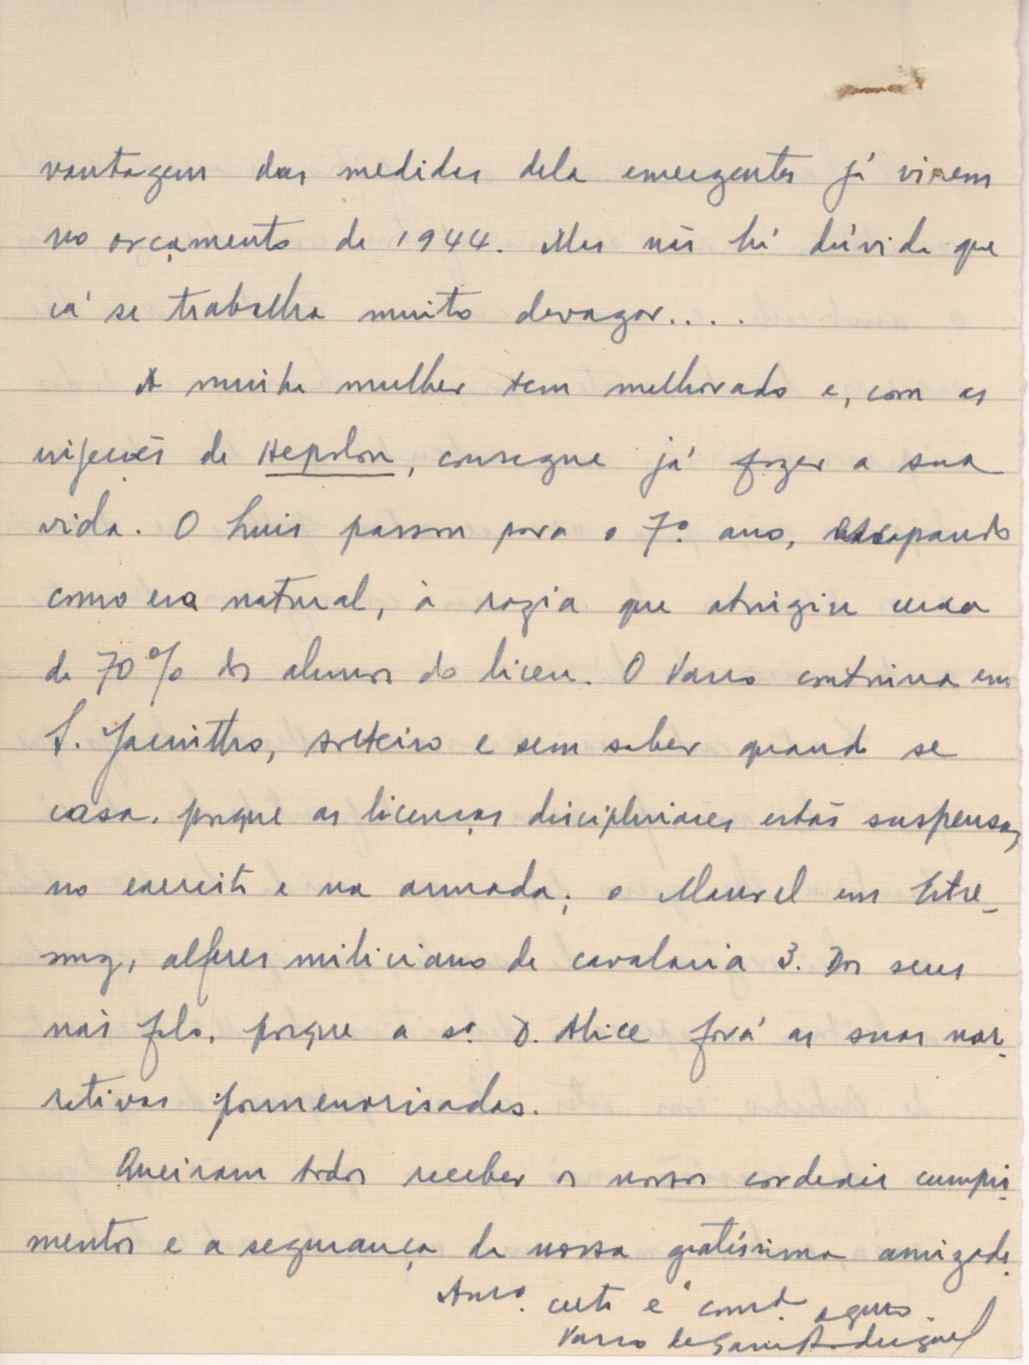 vantagem das medidas dela emergentes já virem
no orçamento de 1944. Mas não há dúvida que
cá se trabalha muito devagar....
A minha mulher tem melhorado e, com as
injecções de Hepolon, consegue já fazer a sua
vida. O Luis passou para o 7º ano, escapando
como era natural, à razia que atingiu cerca
de 70% dos alunos do liceu. O Vasco continua em
S. Jacintho, solteiro e sem saber quando se
casa, porque as licenças disciplinares estão suspensas,
no exercito e na armada; o Manuel em Estre-
moz, alferes miliciano de cavalaria 3. Dos seus
não falo, porque a Srª D. Alice fará as suas nar-
rativas pormenorisadas.
Queiram todos receber os nossos cordeais cumpri-
mentos e a segurança da nossa gratíssima amizade.
Amº certo e
Vasco de Rodrigues